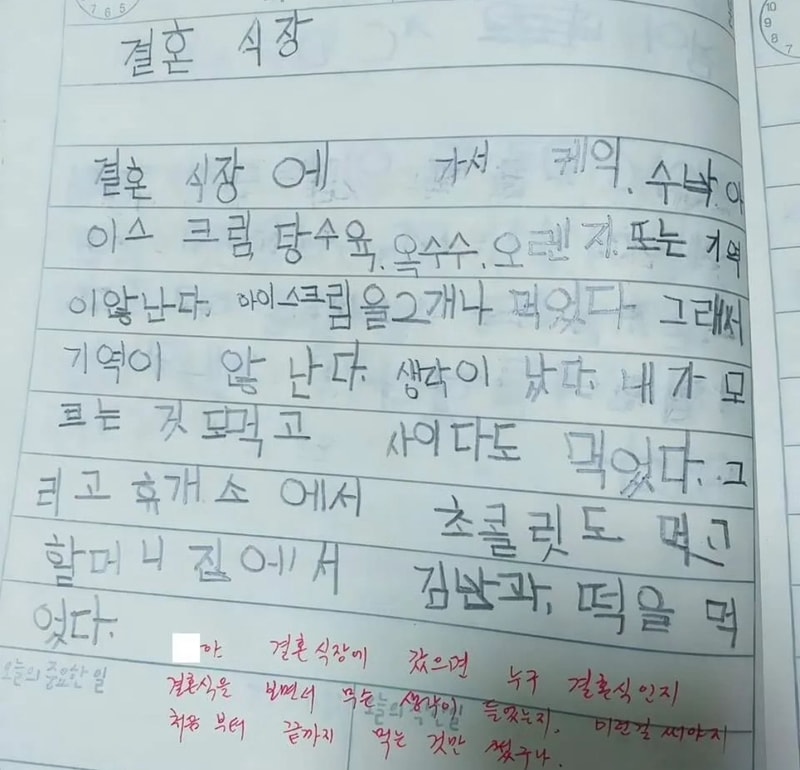 결혼 식장
결혼 식장 에 가서 케익, 수박, 아
이스 크림 탕수육, 옥수수, 오렌지, 또는 기역
이않난다. 아이스크림을2개나 먹었다 그래서
기역이 않 난다. 생각이 났다. 내가 모
르는 것 도먹고 사이다도 먹었다. 그
리고 휴개소 에서 초콜릿도 먹고
할머니 집에서 김밥과, 떡을 먹
었다.
야 결혼식장에 갔으면 누구 결혼식인지
오늘의 중요한 일
결혼식을 보면서 무슨 생각이 들었는지, 이런걸 써야지
처음 부터 끝까지 먹는 것만 썼구나.